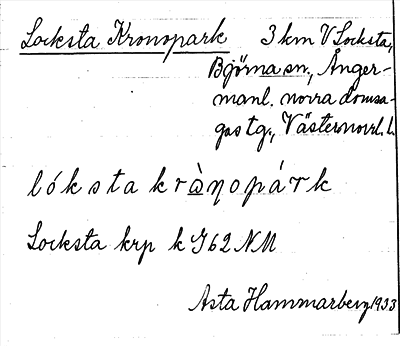 Locksta Kronopark 3 km V Locksta,
Björna sn., Ånger-
manl. norra domsa-
gas tg., Västernorrl. l.
lóksta krànopárk
Locksta krp k J62 NM
Asta Hammarberg 1933